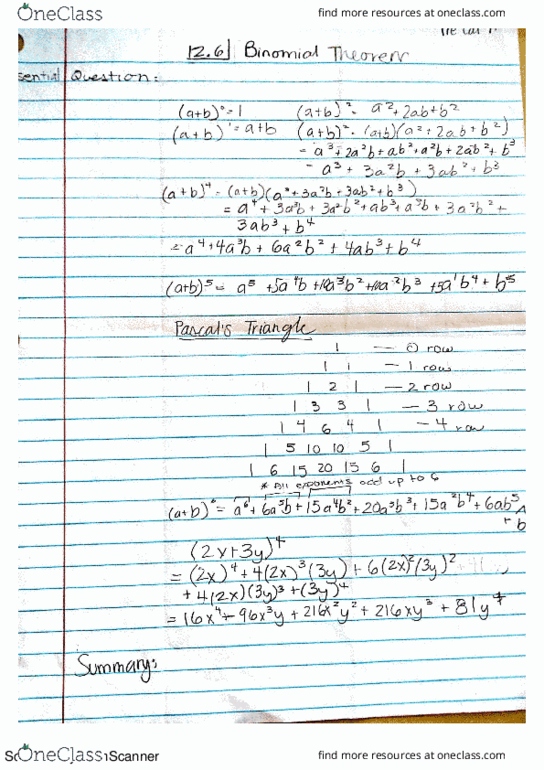 OneClass
find more resources at oneclass.com
12.6 Binomial Theorem
sential Question:
(a+b)⁰=1 (a+b)². a²+2ab+b²
(a+b)¹=a+b (a+b)². (a+b)(a²+2ab+b²)
= a³+2a²b+ab²+a²b+2ab²+b³
= a³+3a²b+3ab²+b³
(a+b)⁴=(a+b)(a³+3a²b+3ab²+b³)
= a⁴+3a³b+3a²b²+ab³+a³b+3a²b²+
3ab³+b⁴
= a⁴+4a³b+6a²b²+4ab³+b⁴
(a+b)⁵= a⁵+5a⁴b+10a³b²+10a²b³+5a¹b⁴+b⁵
Pascal's Triangle
1 — 0 row
1 1 — 1 row
1 2 1 — 2 row
1 3 3 1 — 3 row
1 4 6 4 1 — 4 row
1 5 10 10 5 1
1 6 15 20 15 6 1
* All exponents add up to 6
(a+b)⁶=a⁶+6a⁵b+15a⁴b²+20a³b³+15a²b⁴+6ab⁵
+b
(2x+3y)⁴
= (2x)⁴+4(2x)³(3y)+6(2x)²(3y)²
+4(2x)(3y)³+(3y)⁴
= 16x⁴+96x³y+216x²y²+216xy³+81y⁴
Summary:
OneClass Scanner
find more resources at oneclass.com